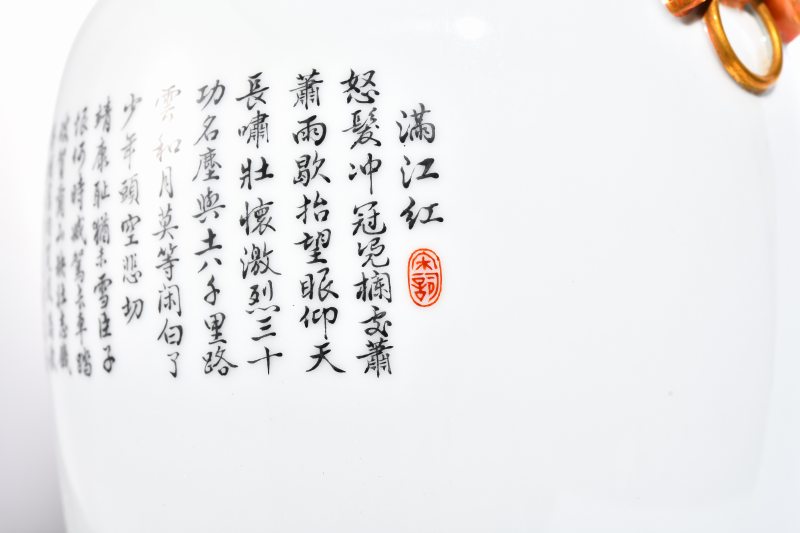 滿江红
宋詞
怒髮冲冠凭欄處蕭
蕭雨歇抬望眼仰天
長嘯壯懷激烈三十
功名塵與土八千里路
雲和月莫等闲白了
少年頭空悲切
靖康耻猶未雪臣子
恨何時滅駕長車踏
破賀蘭山缺壮志飢